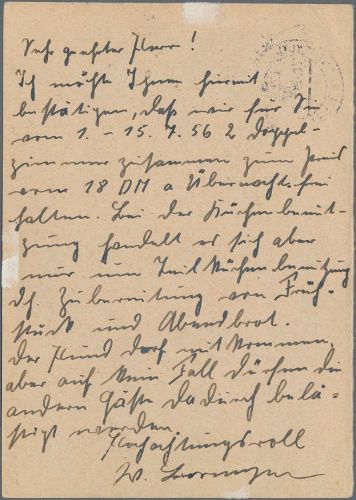 Sehr geehrter Herr!
Ich möchte Ihnen hiermit
bestätigen, daß wir für Sie
vom 1. - 15. 7. 56 2 Doppel-
zimmer zusammen zum Preis
von 18 DM a Übernacht. frei
halten. Bei der Küchenbenut-
zung handelt es sich aber
nur um Teilküchenbenutzung
dh. Zubereitung von Früh-
stück und Abendbrot.
Der Hund darf mitkommen,
aber auf kein Fall dürfen die
andern Gäste dadurch belä-
stigt werden.
Hochachtungsvoll
W.